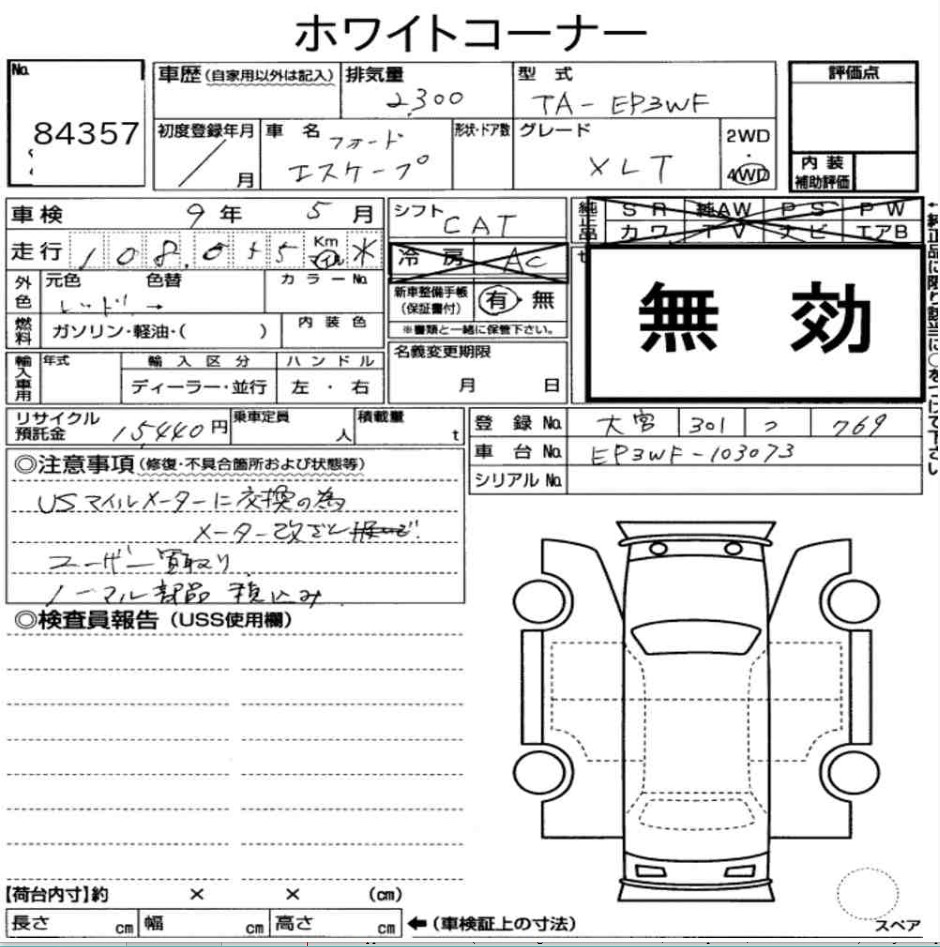 ホワイトコーナー
No.
84357
車歴(自家用以外は記入)
排気量
2,300
型 式
TA-EP3WF
評価点
初度登録年月
/ 月
車 名
フォード
エスケープ
形状・ドア数
グレード
XLT
2WD
・
4WD
内 装
補助評価
車検 9年 5月
シフト
CAT
純正品
SR 純AW PS PW
カワ TV ナビ エアB
走行
Km
マイル
冷 房 AC
無 効
外色
元色 色替
レッド →
カラーNo.
新車整備手帳
(保証書付)
有・無
※書類と一緒に保管下さい。
燃料
ガソリン・軽油・( )
内装色
輸入車用
年式
輸入区分
ディーラー・並行
ハンドル
左・右
名義変更期限
月 日
←純正品に限り該当に○をつけて下さい
リサイクル
預託金
15,440円
乗車定員
人
積載量
t
登 録 No. 大宮 301 769
車 台 No. EP3WF-103073
シリアル No.
◎注意事項(修復・不具合箇所および状態等)
USマイルメーターに交換の為
メーター改ざん
ユーザー買取り
ノーマル部品 積込み
◎検査員報告(USS使用欄)
【荷台内寸】約 × × (cm)
長さ cm 幅 cm 高さ cm ←(車検証上の寸法)
スペア